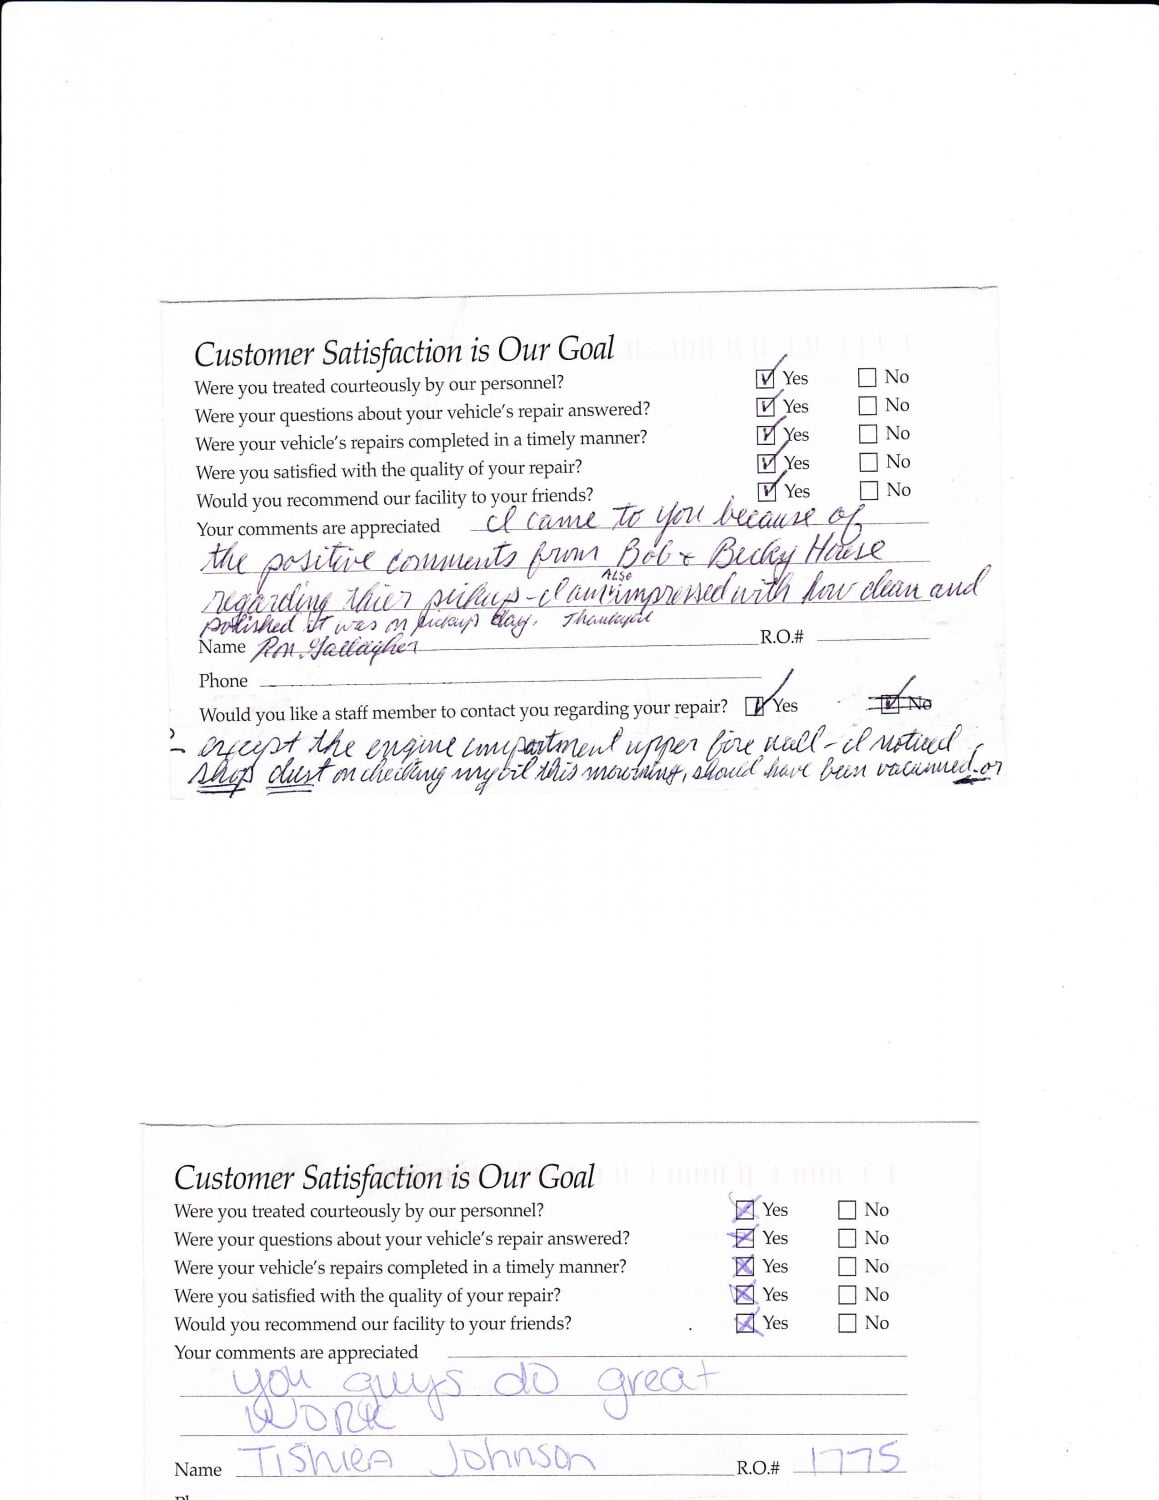 Customer Satisfaction is Our Goal
Were you treated courteously by our personnel? Yes No
Were your questions about your vehicle's repair answered? Yes No
Were your vehicle's repairs completed in a timely manner? Yes No
Were you satisfied with the quality of your repair? Yes No
Would you recommend our facility to your friends? Yes No
Your comments are appreciated I came to you because of
the positive comments from Bob & Becky House
regarding thier pickup - I am ALSO impressed with how clean and
polished it was on pickup day. Thankyou
Name Rm. Gallagher R.O.#
Phone
Would you like a staff member to contact you regarding your repair? Yes No
- except the engine compartment upper fire wall - I noticed
shop dust on checking my oil this mourning, should have been vacumned or
Customer Satisfaction is Our Goal
Were you treated courteously by our personnel? Yes No
Were your questions about your vehicle's repair answered? Yes No
Were your vehicle's repairs completed in a timely manner? Yes No
Were you satisfied with the quality of your repair? Yes No
Would you recommend our facility to your friends? Yes No
Your comments are appreciated
you guys do great
WORK
Name TisHiEA Johnson R.O.# 1775